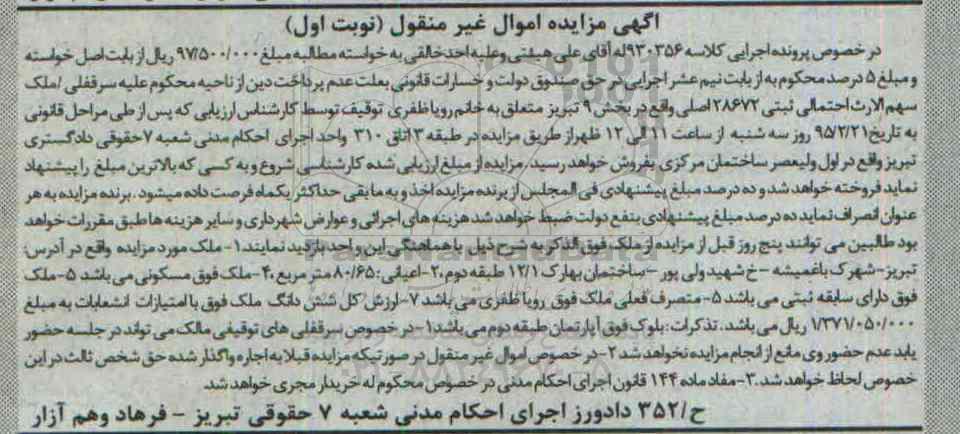 آگهی مزایده اموال غیر منقول (نوبت اول)
در خصوص پرونده اجرایی کلاسه ۹۳۰۳۵۶ له آقای علی هیئتی وعلیه احد خالقی به خواسته مطالبه مبلغ ۹۷/۵۰۰/۰۰۰ ریال از بابت اصل خواسته
و مبلغ ۵ درصد محکوم به از بابت نیم عشر اجرایی در حق صندوق دولت و خسارات قانونی بعلت عدم پرداخت دین از ناحیه محکوم علیه سرقفلی /ملک
سهم الارث احتمالی ثبتی ۲۸۶۷۲ اصلی واقع در بخش ۹ تبریز متعلق به خانم رویا ظفری توقیف توسط کارشناس ارزیابی که پس از طی مراحل قانونی
به تاریخ ۹۵/۲/۲۱ روز سه شنبه از ساعت ۱۱ الی ۱۲ ظهر از طریق مزایده در طبقه ۳ اتاق ۳۱۰ واحد اجرای احکام مدنی شعبه ۷ حقوقی دادگستری
تبریز واقع در اول ولیعصر ساختمان مرکزی بفروش خواهد رسید. مزایده از مبلغ ارزیابی شده کارشناسی شروع و به کسی که بالاترین مبلغ را پیشنهاد
نماید فروخته خواهد شد و ده درصد مبلغ پیشنهادی فی المجلس از برنده مزایده اخذ و به مابقی حداکثر یکماه فرصت داده میشود. برنده مزایده به هر
عنوان انصراف نماید ده درصد مبلغ پیشنهادی بنفع دولت ضبط خواهد شد هزینه های اجرائی و عوارض شهرداری و سایر هزینه ها طبق مقررات خواهد
بود طالبین می توانند پنج روز قبل از مزایده از ملک فوق الذکر به شرح ذیل با هماهنگی این واحد بازدید نمایند. ۱- ملک مورد مزایده واقع در آدرس:
تبریز-شهرک باغمیشه -خ شهید ولی پور -ساختمان بهارک ۱۲/۱ طبقه دوم.۲-اعیانی: ۸۰/۶۵ متر مربع .۴-ملک فوق مسکونی می باشد ۵-ملک
فوق دارای سابقه ثبتی می باشد ۵-متصرف فعلی ملک فوق رویا ظفری می باشد ۷-ارزش کل شش دانگ ملک فوق با امتیازات انشعابات به مبلغ
۱/۳۷۱/۰۵۰/۰۰۰ ریال می باشد. تذکرات: بلوک فوق آپارتمان طبقه دوم می باشد ۱-در خصوص سرقفلی های توقیفی مالک می تواند در جلسه حضور
یابد عدم حضور وی مانع از انجام مزایده نخواهد شد ۲-در خصوص اموال غیر منقول در صورتیکه مزایده قبلا به اجاره واگذار شده حق شخص ثالث در این
خصوص لحاظ خواهد شد. ۳-مفاد ماده ۱۴۴ قانون اجرای احکام مدنی در خصوص محکوم له خریدار مجری خواهد شد.
ح/۳۵۲ دادورز اجرای احکام مدنی شعبه ۷ حقوقی تبریز - فرهاد وهم آزار